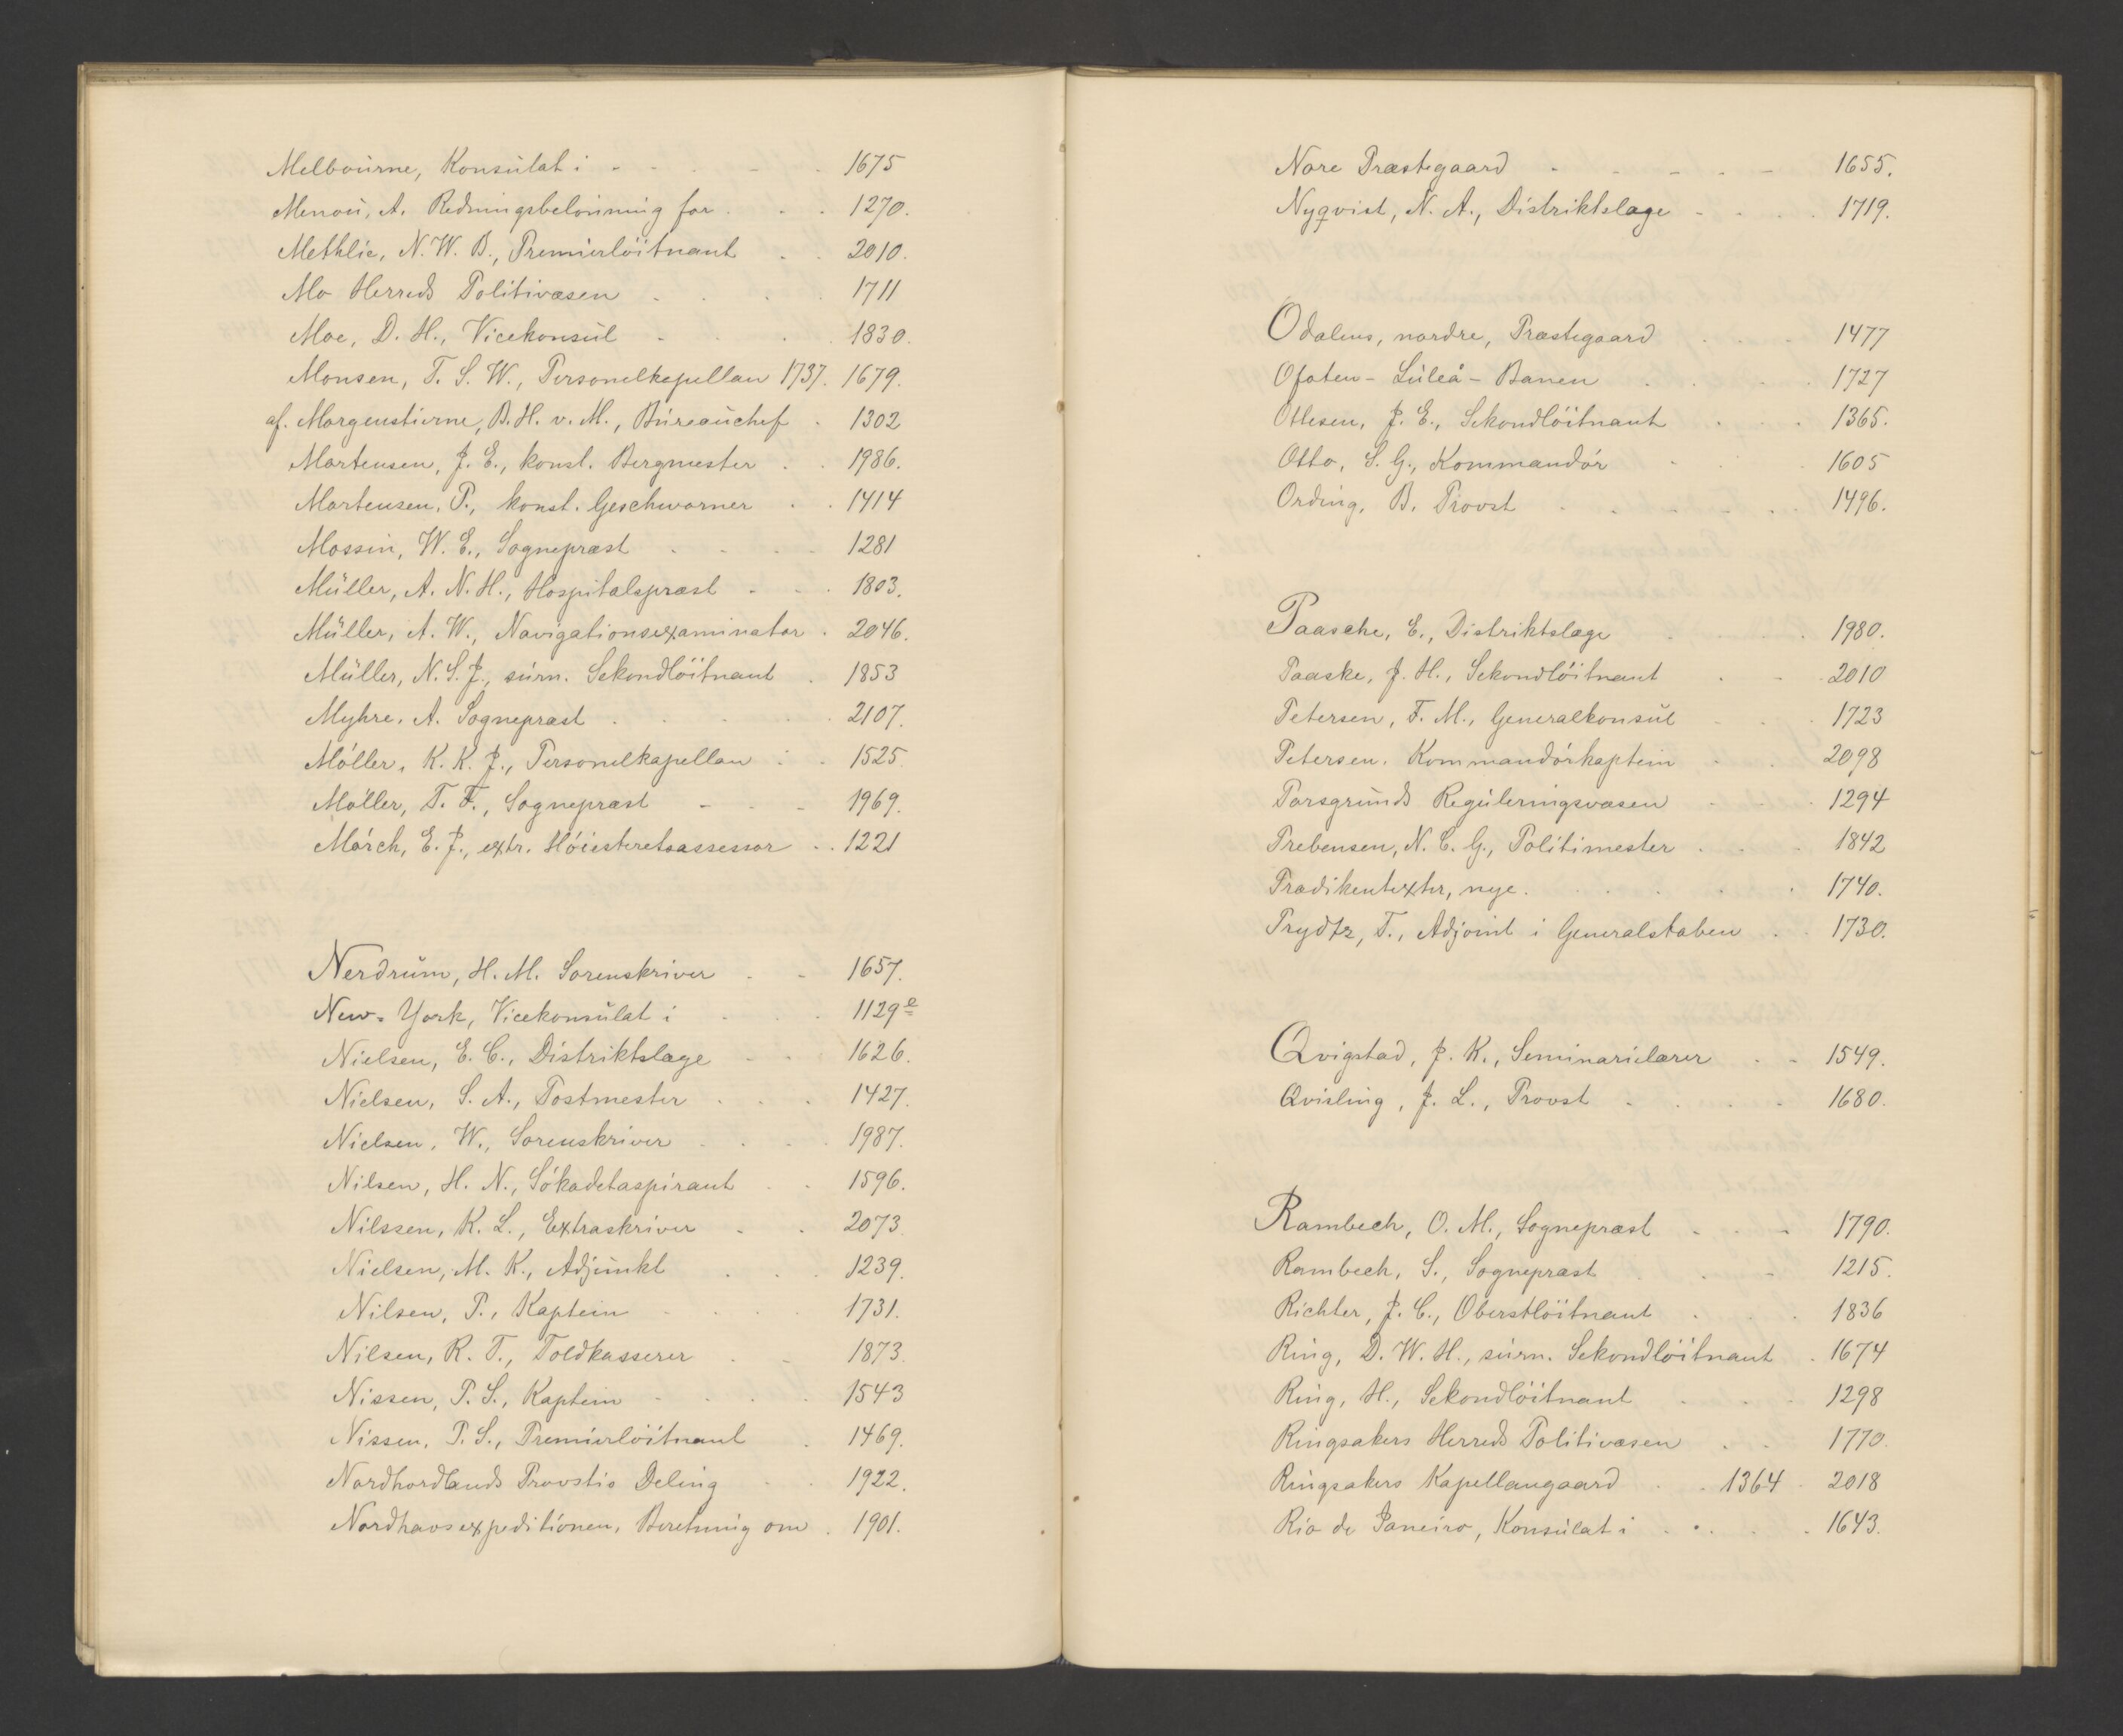 Melbourne, Konsulat i 1675
Menou, A. Redningsbelønning for 1270.
Methlie, N. W. B., Premierlöitnant 2010.
Mo Herreds Politivæsen 1711
Moe, D. H., Vicekonsul 1830.
Monsen, T. S. W., Personelkapellan 1737. 1679.
af. Morgenstierne, B. H. v. M., Bureauchef 1302
Mortensen, J. E., konst. Bergmester 1986.
Mortensen, P., konst. Geschworner 1414
Mossin, W. E., Sognepræst 1281
Müller, A. N. H., Hospitalspræst 1803.
Müller, A. W., Navigationsexaminator 2046.
Müller, N. S. J., surn. Sekondlöitnant 1853
Myhre, A. Sognepræst 2107.
Möller, K. K. J., Personelkapellan 1525.
Möller, T. F., Sognepræst 1969.
Mörch, E. J., extr. Höiesteretsassessor 1221
Nerdrum, H. M. Sorenskriver 1657.
New-York, Vicekonsulat i 1129e
Nielsen, E. C., Distriktslæge 1626.
Nielsen, S. A., Postmester 1427.
Nielsen, W., Sorenskriver 1987.
Nilsen, H. N., Sökadetaspirant 1596.
Nilssen, K. L., Extraskriver 2073
Nielsen, M. K., Adjunkt 1239.
Nilsen, P., Kaptein 1731.
Nilsen, R. T., Toldkasserer 1873.
Nissen, P. S., Kaptein 1543
Nissen, P. S., Premierlöitnant 1469.
Nordhordlands Provstis Deling 1922.
Nordhavsexpeditionen, Beretning om 1901.
Nore Præstegaard 1655.
Nyqvist, N. A., Distriktslæge 1719.
Odalens, nordre, Præstegaard 1477
Ofoten-Luleå-Banen 1727
Ottesen, J. E., Sekondlöitnant 1365.
Otto, S. G., Kommandör 1605
Ording, B. Provst 1496.
Paasche, E., Distriktslæge 1980.
Paaske, J. H., Sekondlöitnant 2010
Petersen, F. M., Generalkonsul 1723
Petersen, Kommandörkaptein 2098
Porsgrunds Reguleringsvæsen 1294
Prebensen, N. C. G., Politimester 1842
Prædikentexter, nye. 1740.
Prydtz, T., Adjoint i Generalstaben 1730.
Qvigstad, J. K., Seminarielærer 1549.
Qvisling, J. L., Provst 1680.
Rambech, O. M., Sognepræst 1790.
Rambech, S., Sognepræst 1215.
Richter, J. C., Oberstlöitnant 1836
Ring, D. W. H., surn. Sekondlöitnant 1674
Ring, H., Sekondlöitnant 1298
Ringsakers Herreds Politivæsen 1770.
Ringsakers Kapellangaard 1364 2018
Rio de Janeiro, Konsulat i 1643.